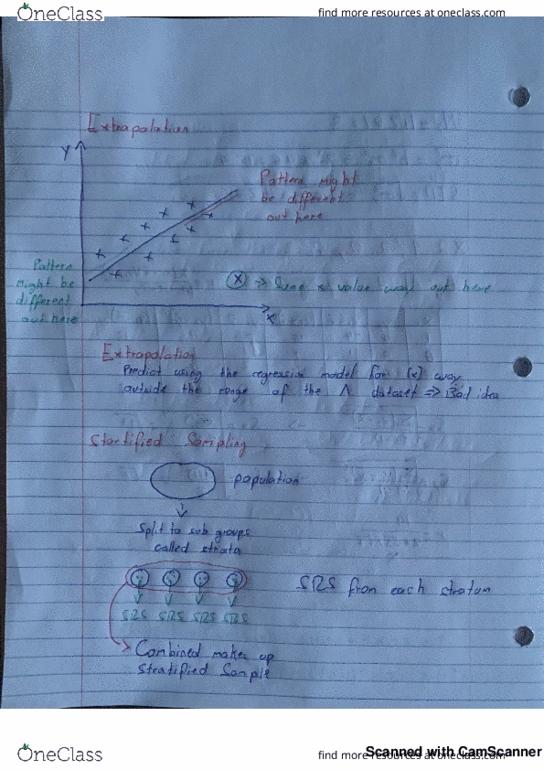 OneClass
find more resources at oneclass.com
Extrapolation
Y
Pattern might
be different
out here
Pattern
Might be
different
out here
(x) => Some x value way out here
x
Extrapolation
Predict using the regression model for [x] way
outside the range of the Λ dataset => Bad idea
Startified Sampling
population
Split to sub groups
called strata
SRS from each stratum
SRS SRS SRS SRS
Combined makes up
Stratified Sample
OneClass
find more resources at oneclass.com
Scanned with CamScanner